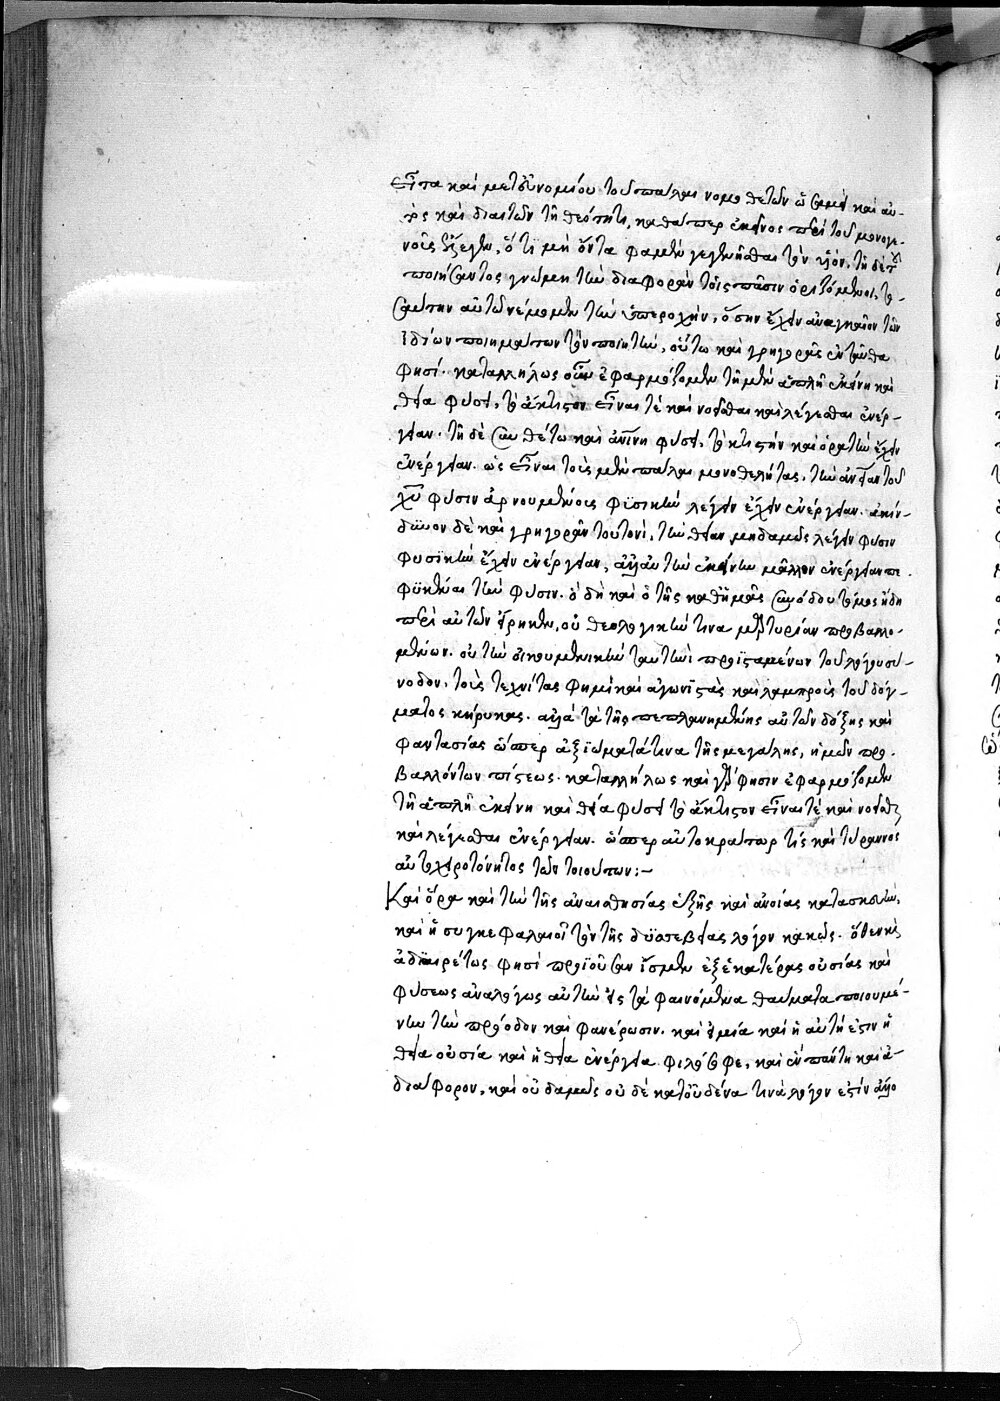 εἶτα καὶ μετ' εὐνομίου τοῦ πάλαι νομοθετῶν ὠσαμὴ καὶ αὐ-
καὶ διαιτῶν τῇ θεότητι, καθάπερ ἐκεῖνος περὶ τοῦ μονογε-
νοῦς ἔλεγεν, ὅτι μὴ ὄντα φαμὲν γεγενῆσθαι τὸν υἱόν, τῇ δὲ τοῦ
ποιήσαντος γνώμῃ τὴν διαφορὰν τοῖς πᾶσιν ὁριζόμενοι, το-
σαύτην αὐτῷ νέμομεν τὴν ὑπεροχὴν, ὅσην ἔχειν ἀναγκαῖον τῶν
ἰδίων ποιημάτων τὸν ποιητὴν, οὕτω καὶ γρηγορᾶς ἐνταῦθα
φησί· καταλλήλως οὖν ἐφαρμόζομεν τῇ μὲν ἁπλῇ ἐκείνῃ καὶ
θεία φύσει, τὸ ἄκτιστον εἶναί τε καὶ νοεῖσθαι καὶ λέγεσθαι ἐνέρ-
γειαν· τῇ δὲ συνθέτω καὶ φύσει, τὸ κτιστὴν καὶ ὁρατὴν ἔχειν
ἐνέργειαν. ὡς εἶναι τοὺς μὲν πάλαι μονοθελήτας, τὴν τοῦ
χυ φύσιν ἀρνουμένους φυσικὴν λέγειν ἔχειν ἐνέργειαν. ἀκίν-
δυνον δὲ καὶ γρηγορᾶν τουτονὶ, τὴν θείαν μηδαμῶς λέγειν φύσιν
φυσικὴν ἔχειν ἐνέργειαν, ἀλλ' αὐτὴν ἐκείνην μᾶλλον ἐνέργειαν πε-
φυκέναι τὴν φύσιν. ὃ δὴ καὶ ὁ τῆς καθ' ἡμᾶς συνόδου τόμος ἤδη
περὶ αὐτῶν εἴρηκεν, οὐ θεολογικήν τινα μαρτυρίαν προβαλλο-
μένων. οὐ τὴν οἰκουμενικὴν ταυτηνὶ προϊσταμένων τοῦ λόγου σύ-
νοδον, τοὺς τεχνίτας φημὶ καὶ ἀγωνιστὰς καὶ λαμπροὺς τοῦ δόγ-
ματος κήρυκας. ἀλλὰ τὰ τῆς πεπλανημένης αὐτῶν δόξης καὶ
φαντασίας ὥσπερ ἀξιώματά τινα τῆς μεγάλης, ἡμῶν προ-
βαλλόντων πίστεως. καταλλήλως καὶ γὰρ φησιν ἐφαρμόζομεν
τῇ ἁπλῇ ἐκείνῃ καὶ θεία φύσει τὸ ἄκτιστον εἶναί τε καὶ νοεῖσθαι
καὶ λέγεσθαι ἐνέργειαν. ὥσπερ αὐτοκράτωρ τίς καὶ τύραννος
αὐτοχειροτόνητος τῶν τοιούτων:-
Καὶ ὅρα καὶ τὴν τῆς ἀναισθησίας ἑξῆς καὶ ἀνοίας κατασκευὴν,
καὶ ᾗ συγκεφαλαιοῖ τὸν τῆς δυσσεβείας λόγον κακῶς. ὅθεν καὶ
ἀδιαιρέτως φησὶ προϊοῦσαν ἴσμεν ἐξ ἑκατέρας οὐσίας καὶ
φύσεως ἀναλόγως αὐτὴν εἰς τὰ φαινόμενα θαύματα ποιουμέ-
νην τὴν πρόοδον καὶ φανέρωσιν. καὶ εἰ μία καὶ ἡ αὐτή ἐστιν ἡ
θεία οὐσία καὶ ἡ θεία ἐνέργεια φιλόσοφε, καὶ ἓν πάντη καὶ ἀ-
διάφορον, καὶ οὐδαμῶς οὐδὲ κατ' οὐδένα τινὰ λόγον ἐστὶν ἄλλο